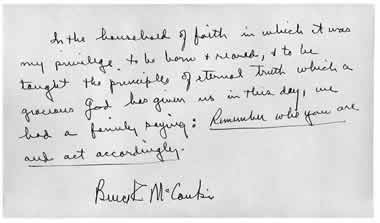 In the household of faith in which it was
my privilege to be born & reared, & to be
taught the principles of eternal truth which a
gracious God has given us in this day, we
had a family saying: Remember who you are
and act accordingly.
Bruce R McConkie